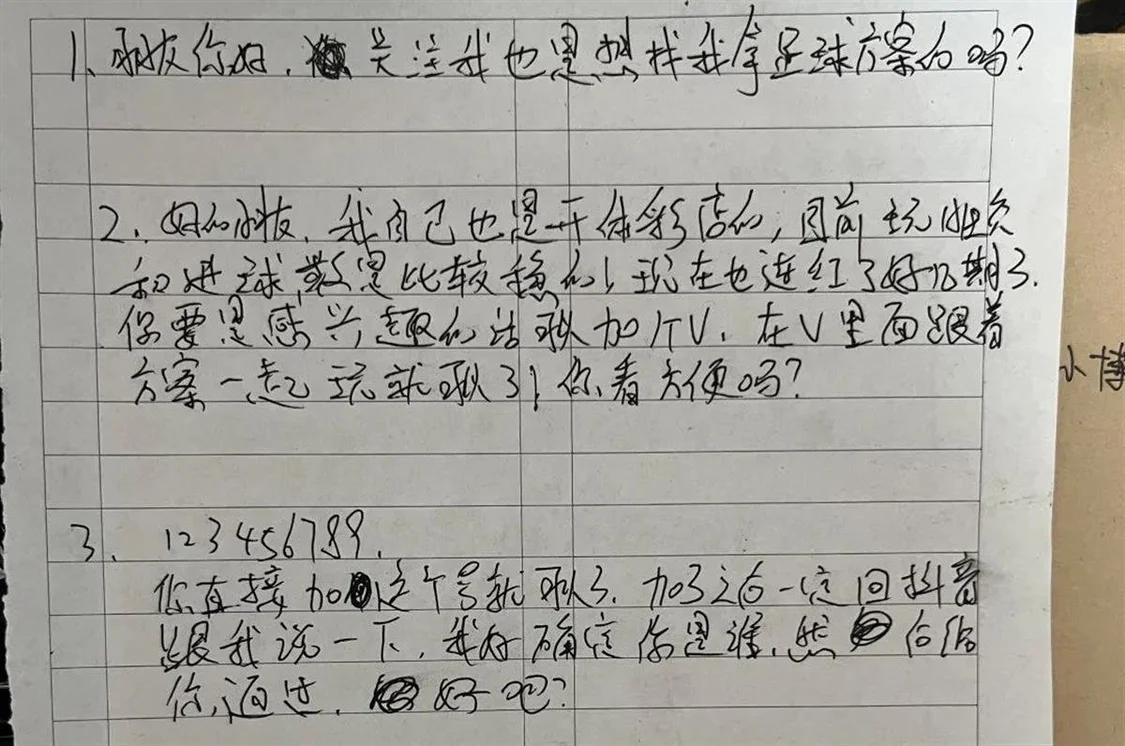 1、球友你好，关注我也是想找我拿足球方案的吗？
2. 好的球友，我自己也是开体彩店的，目前玩胜负
和进球数是比较稳的，现在也连红了好几期了.
你要是感兴趣的话可以加个V，在V里面跟着
方案一起玩就可以了，你看方便吗？
3. 123456789.
你直接加这个号就可以了. 加了之后一定回抖音
跟我说一下，我好确定你是谁，然后给
你通过，好吧？
小博